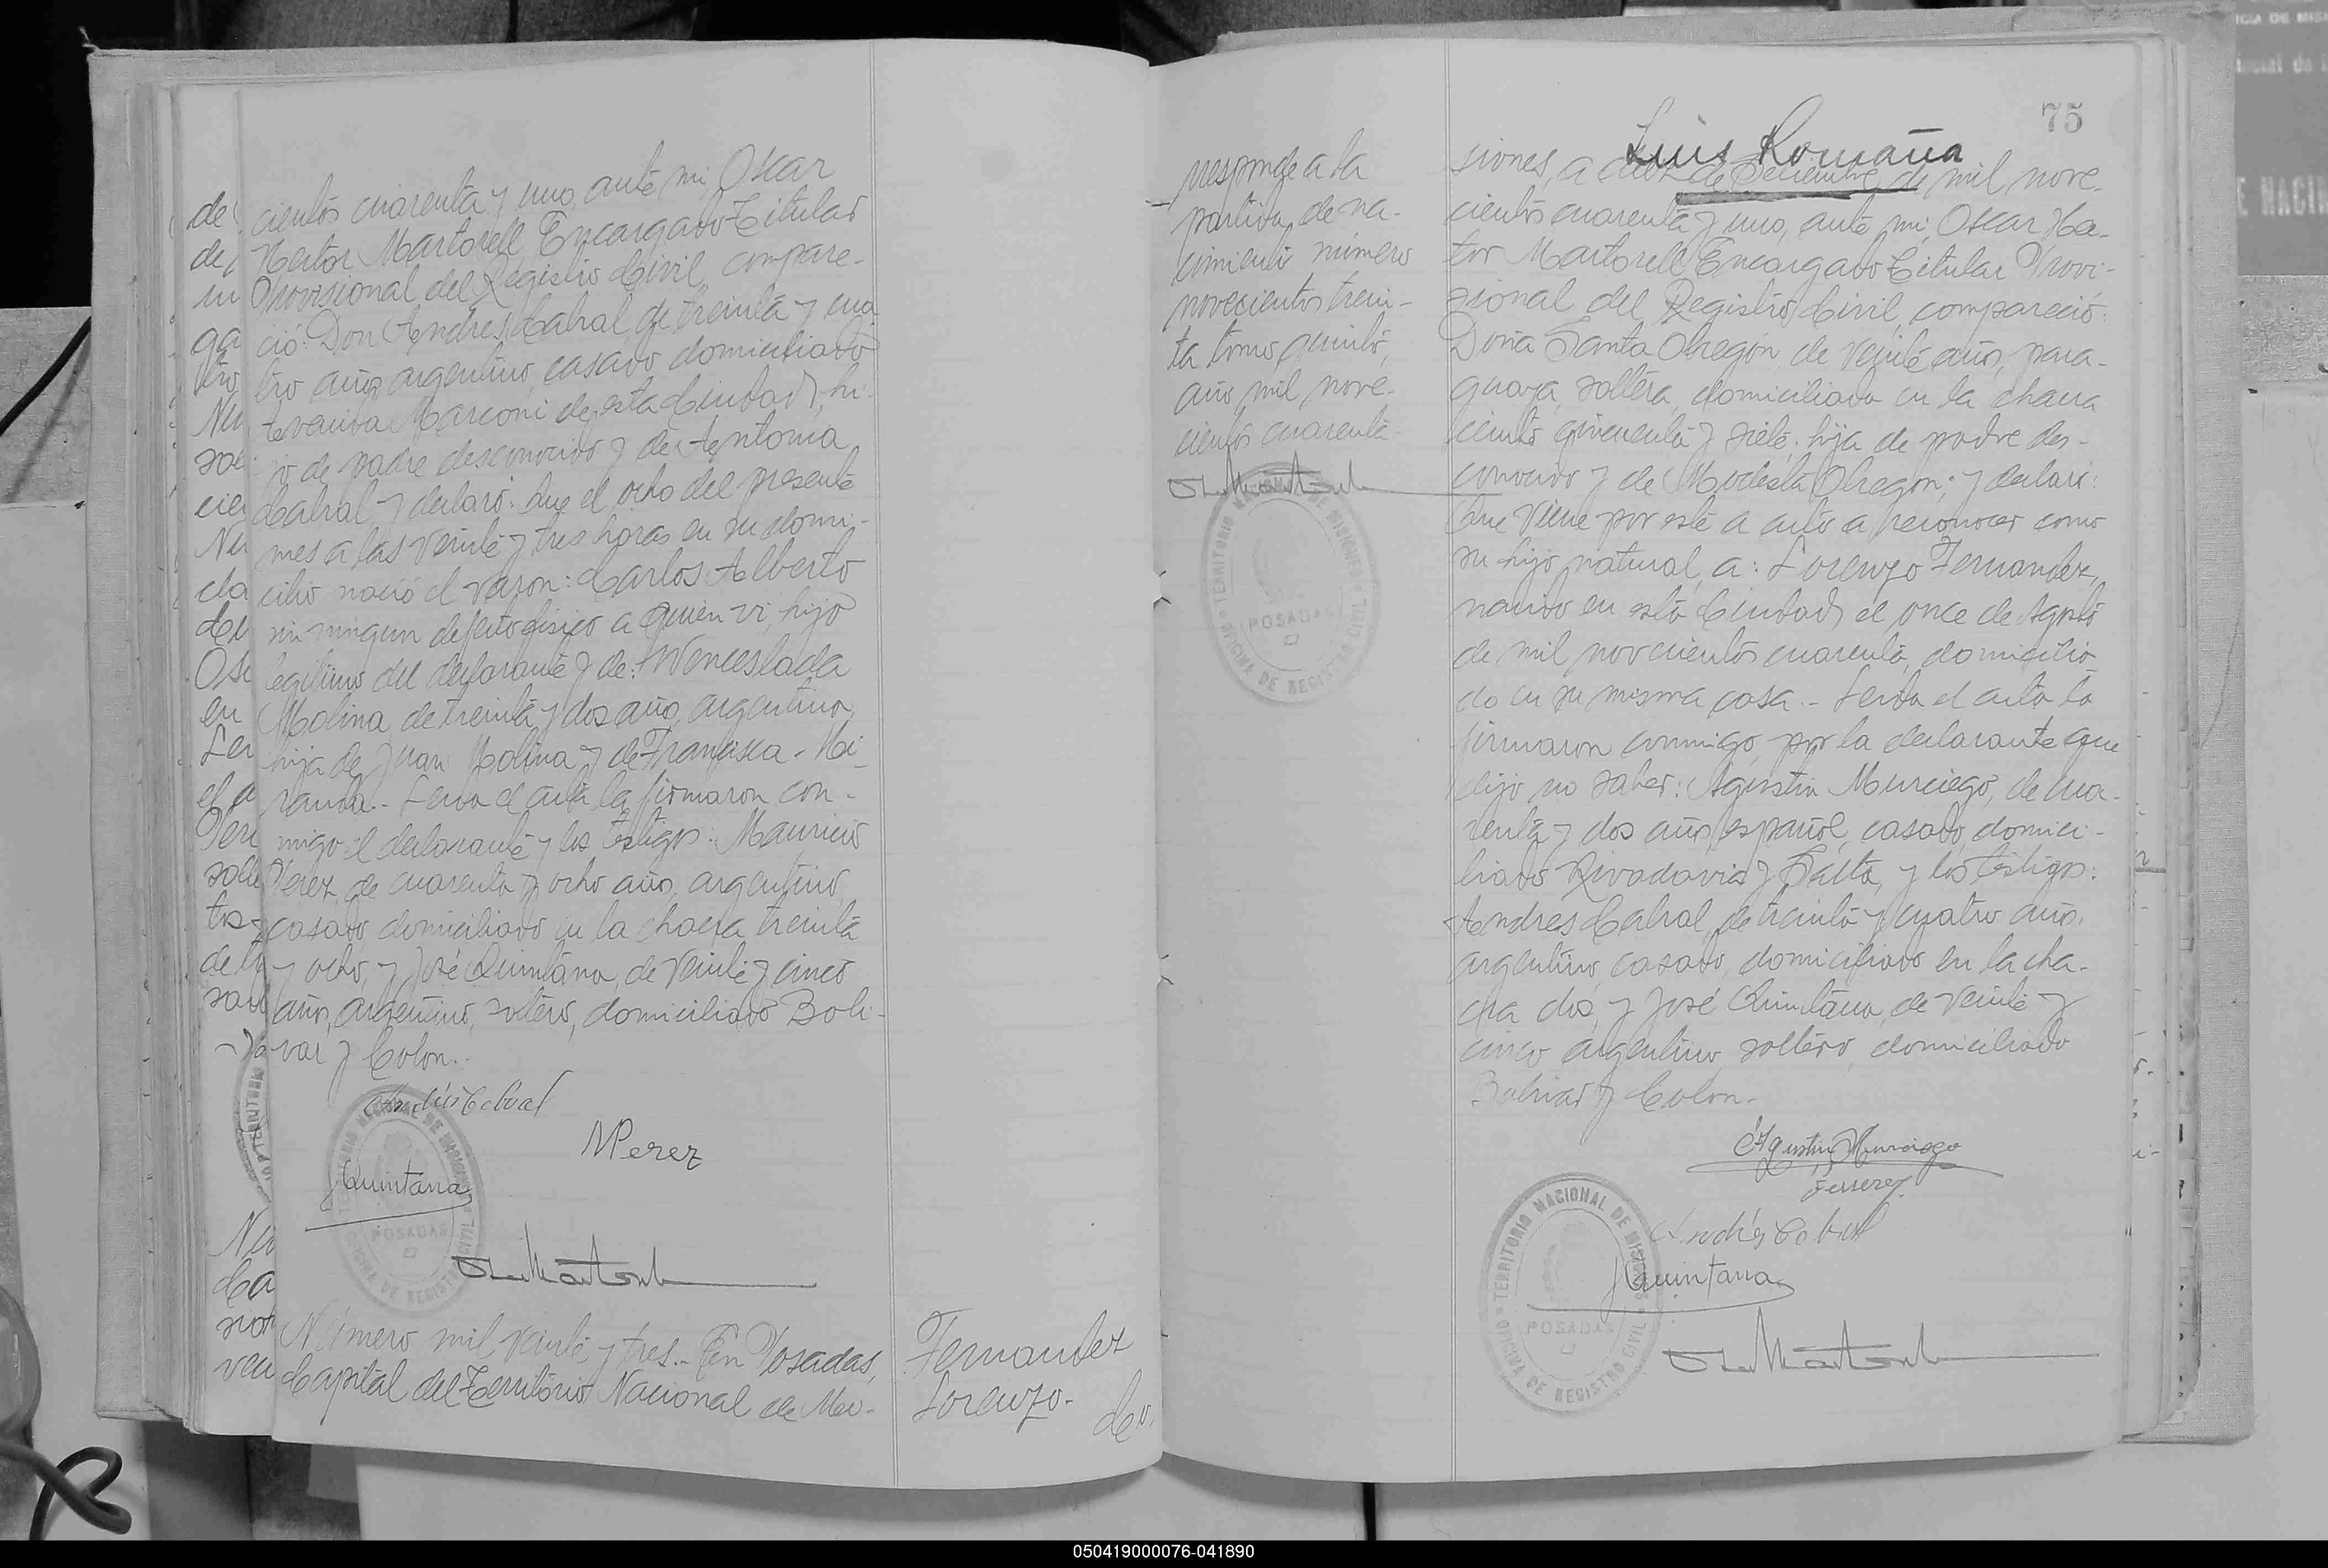 cientos cuarenta y uno, ante mi, Oscar
Hector Martorell Encargado Titular
Provisional del Registro Civil, compare-
ció: Don Andres Cabral, de treinta y cua
tro años, argentino, casado domiciliado
Avenida Marconi de esta Ciudad, hi-
jo de padre desconocido y de Antonia
Cabral y declaró: Que el ocho del presente
mes a las veinte y tres horas en su domi-
cilio nació el varon: Carlos Alberto
sin ningun defecto fisico a quien vi, hijo
legitimo del declarante y de: Wenceslada
Molina, de treinta y dos años, argentina,
hija de Juan Molina y de Francisca Mi-
randa.- Leida el acta la firmaron con-
migo el declarante y los testigos: Mauricio
Perez, de cuarenta y ocho años, argentino
casado, domiciliado en la chacra treinta
y ocho, y José Quintana, de veinte y cinco
años, argentino, soltero, domiciliado Boli-
var y Colon.-
Andrés Cabral
MPerez
JQuintana
POSADAS
Número mil veinte y tres.- En Posadas,
Capital del Territorio Nacional de Mi-
Fernandez
Lorenzo.-
Co.
rresponde a la
partida de na-
cimiento número
novecientos trein-
ta tomo quinto,
año mil nove-
cientos cuarenta
TERRITORIO NACIONAL DE MISIONES
POSADAS
OFICINA DE REGISTRO CIVIL
75
Luis Romaña
siones, a diez de Setiembre de mil nove-
cientos cuarenta y uno, ante mi, Oscar Hec-
tor Martorell Encargado Titular Provi-
sional del Registro Civil, compareció:
Doña Santa Obregon, de veinte años, para-
guaya, soltera, domiciliada en la chacra
ciento cincuenta y siete, hija de padre des-
conocido y de Modesta Obregon; y declaró:
Que viene por este a acto a reconocer como
su hijo natural, a: Lorenzo Fernandez,
nacido en esta Ciudad, el once de Agosto
de mil novecientos cuarenta, domicilia-
do en su misma casa.- Leida el acta la
firmaron conmigo, por la declarante que
dijo no saber: Agustin Murciego, de cua-
renta y dos años, español, casado, domici-
liado Rivadavia y Salta, y los testigos:
Andres Cabral, de treinta y cuatro años,
argentino, casado, domiciliado en la cha-
cra dos, y José Quintana, de veinte y
cinco argentino, soltero, domiciliado
Bolivar y Colon.-
Agustin Murciego
Ferrerez
Andrés Cabral
JQuintana
TERRITORIO NACIONAL DE MISIONES
POSADAS
OFICINA DE REGISTRO CIVIL
050419000076-041890